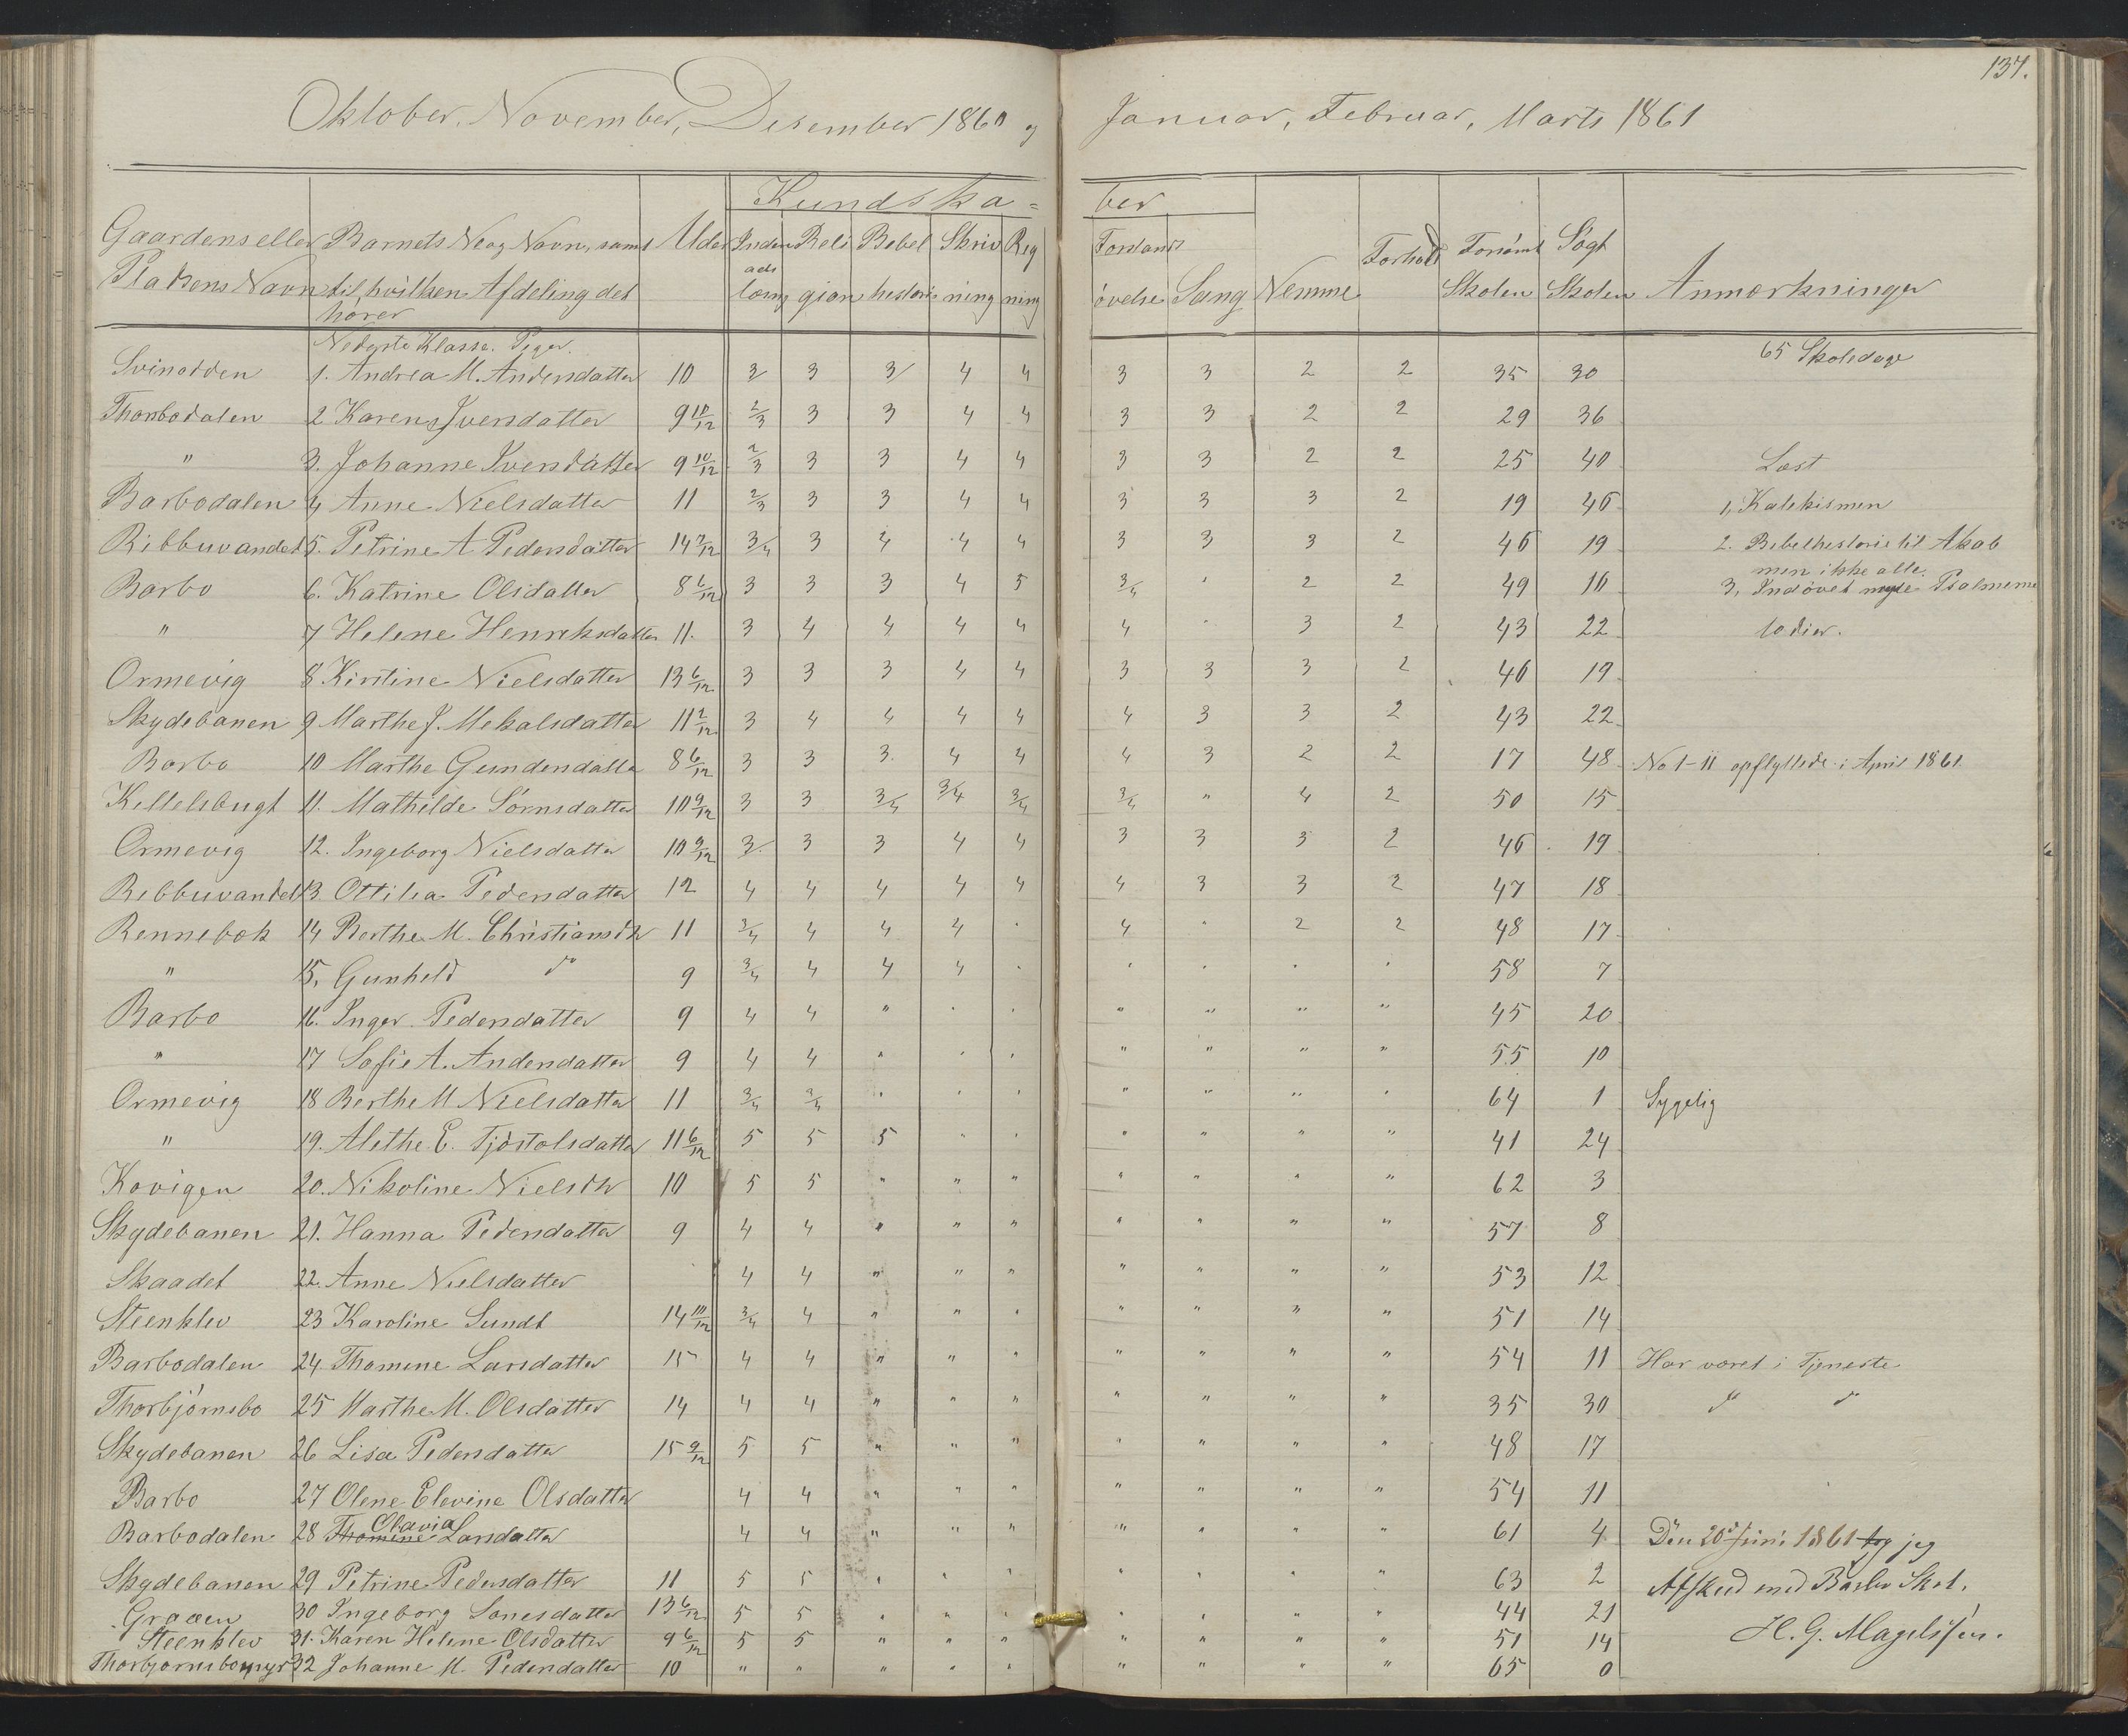 137.
Oktober, November, Desember 1860 og Januar, Februar, Marts 1861
Kundska= ber
Gaardens eller Barnets No og Navn, samt Alder Inden Reli Bebel Skriv Reg Forstands Forhold Forsömt Sögt
Platsens Navn til hvilken Afdeling det ads læsng gion historie ning ning övelse Sang Nemme Skolen Skolen Anmærkninger
hører
Nederste Klasse. Piger. 65 Skoledage
Svinodden 1. Andrea M. Andersdatter 10 3 3 3 4 4 3 3 2 2 35 30
Thorbodalen 2 Karen Iversdatter 9 10/12 2/3 3 3 4 4 3 3 2 2 29 36
" 3. Johanne Iversdatter 9 10/12 2/3 3 3 4 4 3 3 2 2 25 40 Læst
Barbodalen 4 Anne Nielsdatter 11 2/3 3 3 4 4 3 3 3 2 19 46 1, Katekismen
Ribbuvandet 5. Petrine A Pedersdatter 14 7/12 3/4 3 4 4 4 3 3 3 2 46 19 2. Bibelhistorie til Akab
men ikke alle.
Barbo 6. Katrine Olsdatter 8 6/12 3 3 3 4 5 3/4 " 2 2 49 16 3, Indövet nyle Psalmeme
" 7 Helene Henriksdatter 11. 3 4 4 4 4 4 " 3 2 43 22 lodier.
Ormevig 8 Kirstine Nielsdatter 13 6/12 3 3 3 4 4 3 3 3 2 46 19
Skydebanen 9 Marthe J. Mekalsdatter 11 2/12 3 4 4 4 4 4 3 3 2 43 22
Barbo 10 Marthe Gundersdatter 8 6/12 3 3 3 4 4 4 3 2 2 17 48 No 1-11 opflyttede i April 1861
Kittelsbugt 11. Mathilde Sörnsdatter 10 9/12 3 3 3/4 3/4 3/4 3/4 " 4 2 50 15
Ormevig 12. Ingeborg Nielsdatter 10 9/12 3 3 3 4 4 3 3 3 2 46 19
Rebbuvandet 13 Ottilia Pedersdatter 12 4 4 4 4 4 4 3 3 2 47 18
Rennebæk 14 Berthe M. Christiansdtr 11 3/4 4 4 4 " 4 " 2 2 48 17
" 15, Gunheld do 9 3/4 4 4 4 " " " " " 58 7
Barbo 16. Inger Pedersdatter 9 4 4 " " " " " " " 45 20
" 17 Sofie A. Andersdatter 9 4 4 " " " " " " " 55 10
Ormevig 18 Berthe M Nielsdatter 11 3/4 3/4 " " " " " " " 64 1 Sygelig
" 19. Alethe E. Tjöstolsdatter 11 6/12 5 5 5 " " " " " " 41 24
Kovigen 20. Nikoline Nielsdtr 10 5 5 " " " " " " " 62 3
Skydebanen 21. Hanna Pedersdatter 9 4 4 " " " " " " " 57 8
Skaadet 22. Anne Nielsdatter 4 4 " " " " " " " 53 12
Steenklev 23 Karoline Sundt 14 10/12 3/4 4 " " " " " " " 51 14
Barbodalen 24. Thomine Larsdatter 15 4 4 " " " " " " " 54 11 Har været i Tjeneste
Thorbjörnsbo 25 Marthe M. Olsdatter 14 4 4 " " " " " " " 35 30 do do
Skydebanen 26 Lisa Pedersdatter 15 9/12 5 5 " " " " " " " 48 17
Barbo 27 Olene Elevine Olsdatter 4 4 " " " " " " " 54 11
Barbodalen 28 Thomine Olavia Larsdatter 4 4 " " " " " " " 61 4 Den 20de Juni 1861 tog jeg
Skydebanen 29 Petrine Pedersdatter 11 5 5 " " " " " " " 63 2 Afsked med Barbo Skol.
Graaen 30 Ingeborg Sonesdatter 13 6/12 5 5 " " " " " " " 44 21
Steenklev 31. Karen Helene Olsdatter 9 6/12 5 5 " " " " " " " 51 14 H. G. Magelssen.
Thorbjornsbomyr 32 Johanne M. Pedersdatter 10 " " " " " " " " " 65 0